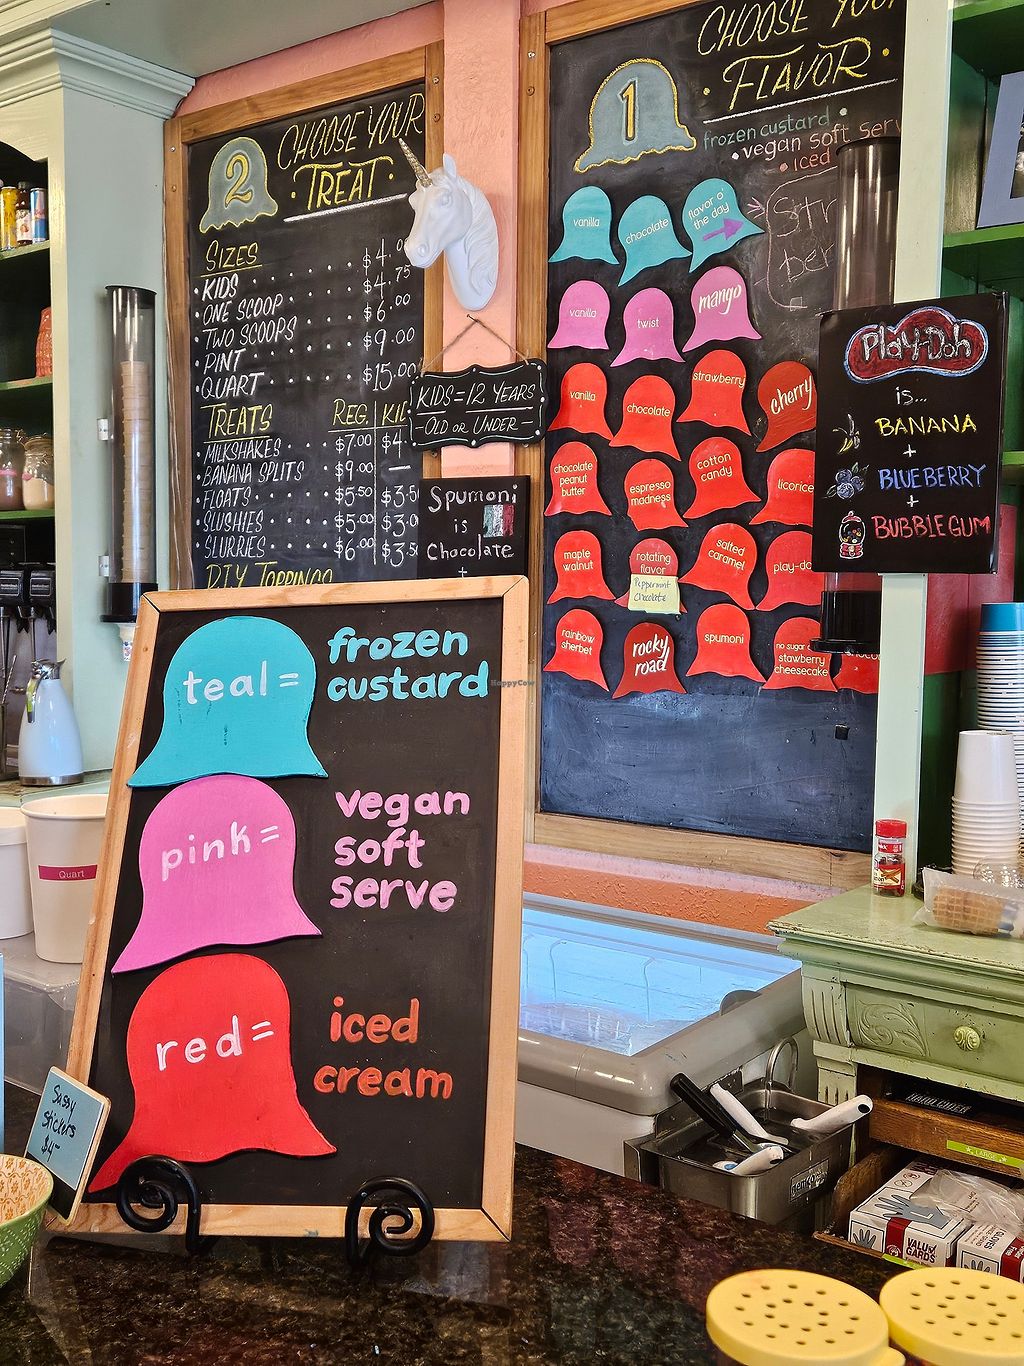 2
CHOOSE YOUR
· TREAT ·
SIZES
· KIDS . . . . . . $4.
· ONE SCOOP . . . . $4.75
· TWO SCOOPS . . . $6.00
· PINT . . . . . . $9.00
· QUART . . . . . . $15.00
TREATS REG. KID
· MILKSHAKES $7.00 $4
· BANANA SPLITS $9.00 —
· FLOATS $5.50 $3.5
· SLUSHIES $5.00 $3.0
· SLURRIES $6.00 $3.5
D.I.Y TOPPINGS
KIDS = 12 YEARS
- OLD OR UNDER -
Spumoni
is
Chocolate
+
1
CHOOSE YOUR
· FLAVOR ·
frozen custard ·
· vegan soft serv
· iced
vanilla
chocolate
flavor o'
the day
Str
ber
vanilla
twist
mango
vanilla
chocolate
strawberry
cherry
chocolate
peanut
butter
espresso
madness
cotton
candy
licorice
maple
walnut
rotating
flavor
Peppermint
Chocolate
salted
caramel
play-do
rainbow
sherbet
rocky
road
spumoni
no sugar
stawberry
cheesecake
Play-Doh
is...
BANANA
+
BLUEBERRY
+
BUBBLEGUM
teal = frozen
custard
pink = vegan
soft
serve
red = iced
cream
HappyCow
Quart
Sussy
Stickers
$4-
VALU
GARDS
GLOVES